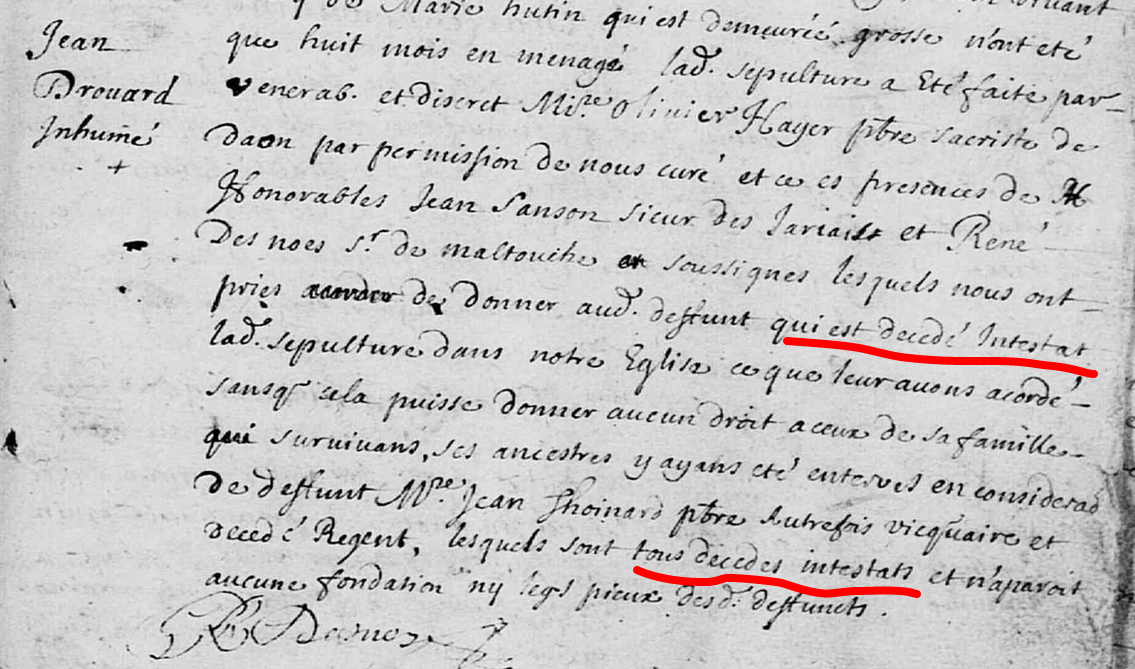 Jean
Drouard
Inhumé
+
y de Marie hutin qui est demeurée grosse n'ont eté
que huit mois en menage lad. sepulture a Eté faite par
venerab. et discret Mire. olivier Hayer pbre sacriste de
Daon par permission de nous curé et ce es presences de
Honorables Jean Sanson sieur des Jariais et René
Des noes sr. de maltouche soussignes lesquels nous ont
priés de donner aud. deffunt qui est decedé Intestat
lad. sepulture dans notre Eglise ce que leur avons acordé
sansq cela puisse donner aucun droit a ceux de sa famille
qui survivans, ses ancestres y ayans eté enterres en considerao
de deffunt Mre. Jean Thoinard pbre Autrefois vicquaire et
decedé Regent, lesquels sont tous decedes intestats et n'aparoit
aucune fondation ny legs pieux desd. deffuncts.